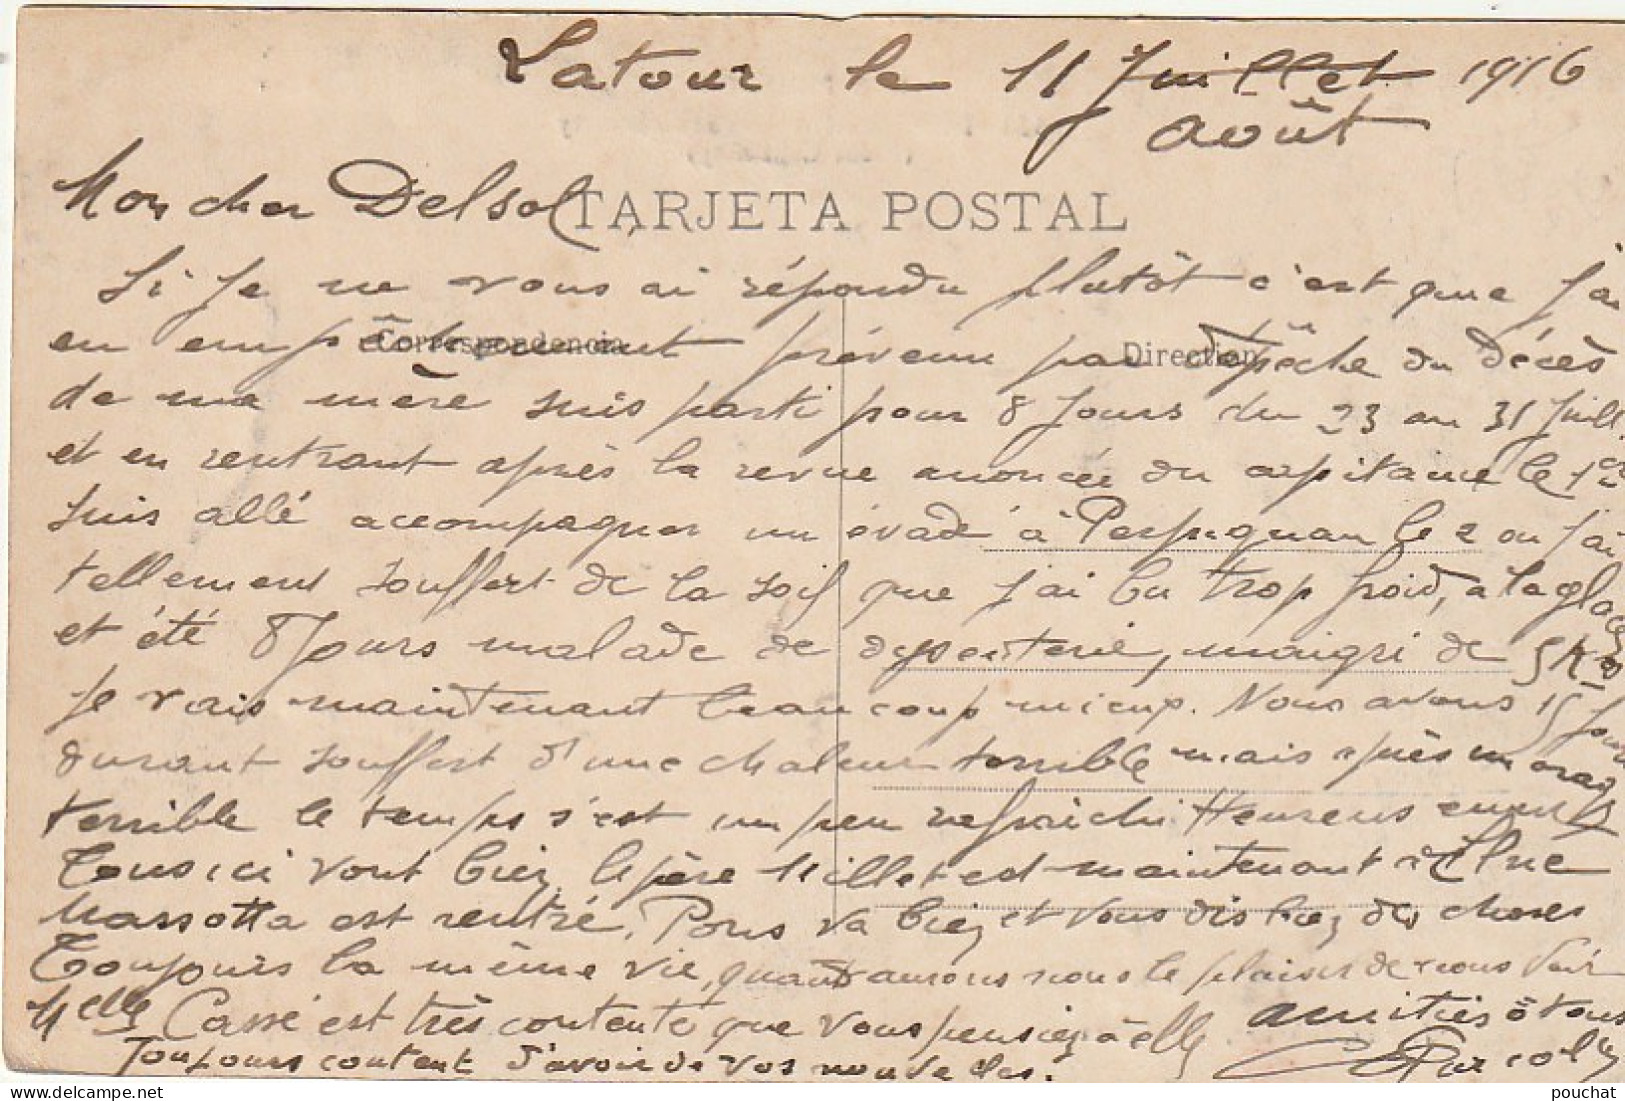 Latour le 11 Juillet 1916
août
Mon cher Delsol
TARJETA POSTAL
Si je ne vous ai répondu plutôt c'est que j'ai
eu empêchement prévenu par dépêche du décès
Correspondencia
Direction
de ma mère suis parti pour 8 jours du 23 au 31 Juill.
et en rentrant après la revue anoncée du capitaine le 1er
suis allé accompagner un évadé à Perpignan le 2 ou j'ai
tellement souffert de la soif que j'ai bu trop froid, à la glace
et été 8 Jours malade de dysenterie, maigri de 5 Kos
je vais maintenant beaucoup mieup. Nous avons 15 jours
durant souffert d'une chaleur terrible mais après un orage
terrible le temps s'est un peu rafraichi. Heureusement
Tous ici vont bien le père Millet est maintenant à Elne
Massotta est rentré. Pons va bien et vous dis bien des choses
Toujours la même vie, quand aurons nous le plaisir de vous voir
Melle Cassé est très contente que vous pensiez à elle. amitiés à tous
Toujours content d'avoir de vos nouvelles.
pouchat